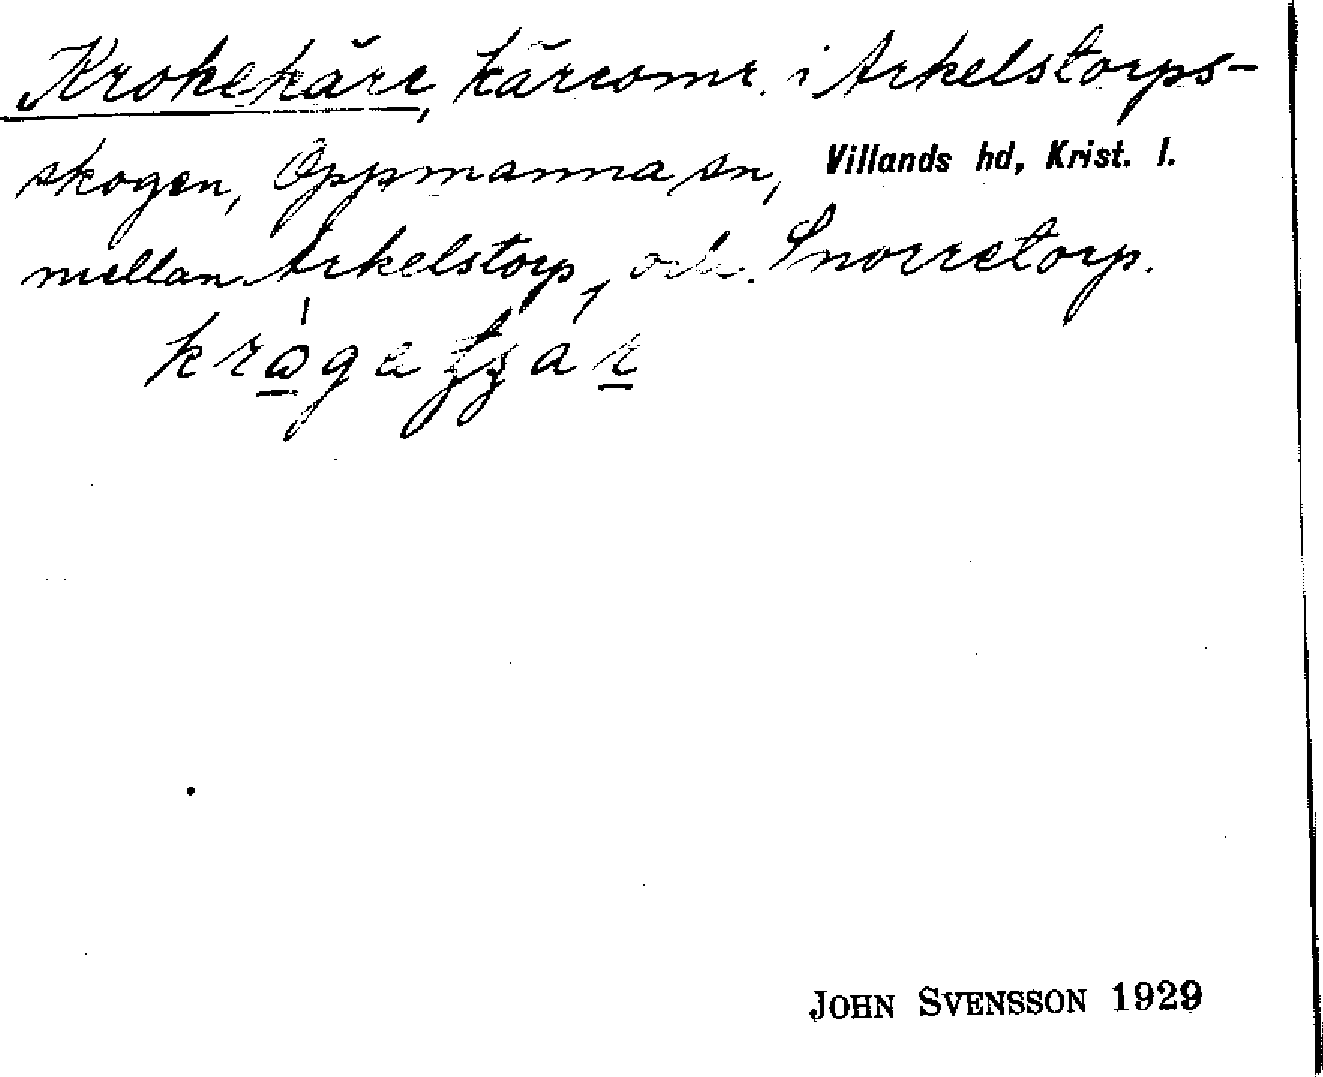 Krokekärr, kärromr. i Arkelstorps-
skogen, Oppmanna sn, Villands hd, Krist. l.
mellan Arkelstorp och Snorretorp.
JOHN SVENSSON 1929